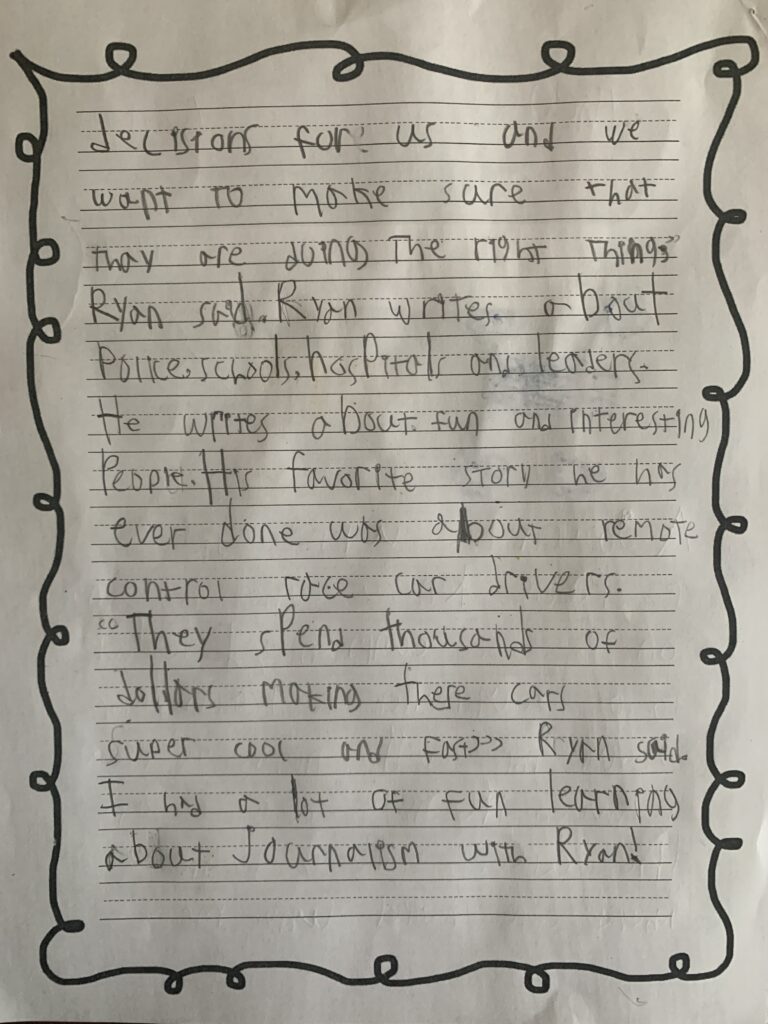 decisions for us and we
want to make sure that
thay are doing The right things"
Ryan said. Ryan writes about
Police, schools, hospitals and leaders.
He writes about fun and interesting
People. His favorite story he has
ever done was about remote
control race car drivers.
"They spend thousands of
dollars making these cars
super cool and fast" Ryan said.
I had a lot of fun learning
about Journalism with Ryan!